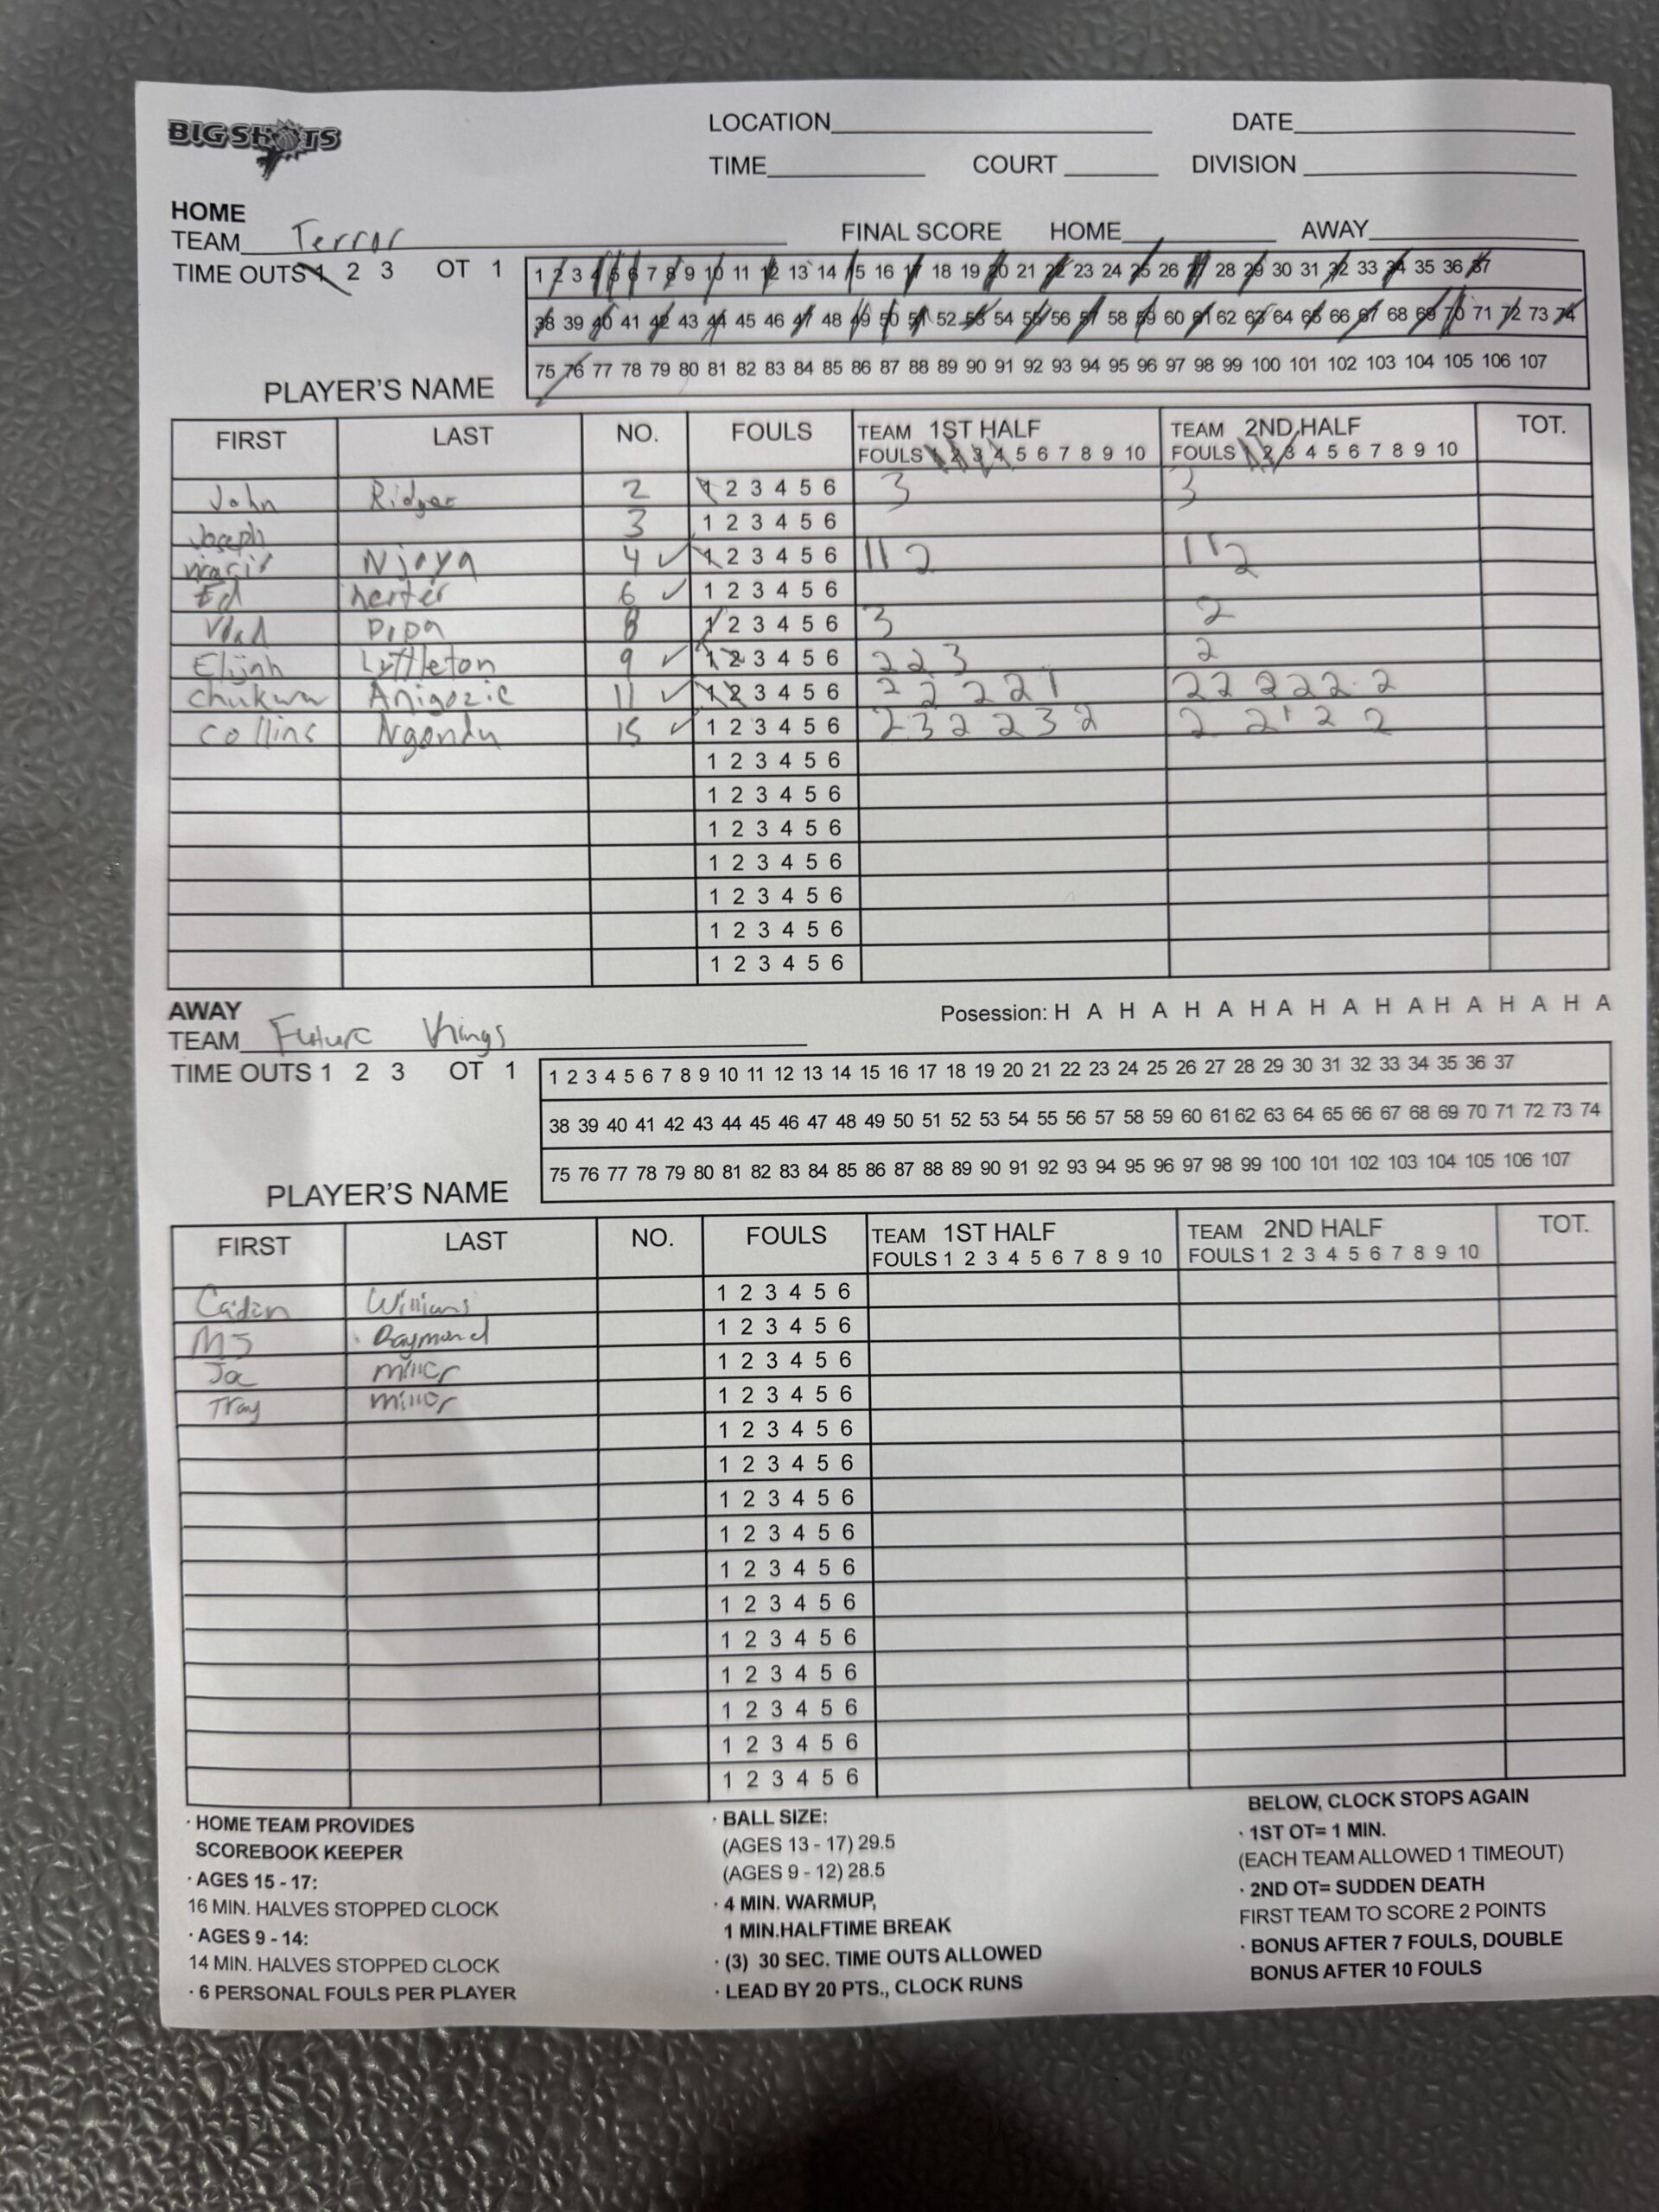 BIG SHOTS
LOCATION DATE
TIME COURT DIVISION
HOME
TEAM Terror FINAL SCORE HOME AWAY
TIME OUTS 1 2 3 OT 1
1 2 3 4 5 6 7 8 9 10 11 12 13 14 15 16 17 18 19 20 21 22 23 24 25 26 27 28 29 30 31 32 33 34 35 36 37
38 39 40 41 42 43 44 45 46 47 48 49 50 51 52 53 54 55 56 57 58 59 60 61 62 63 64 65 66 67 68 69 70 71 72 73 74
75 76 77 78 79 80 81 82 83 84 85 86 87 88 89 90 91 92 93 94 95 96 97 98 99 100 101 102 103 104 105 106 107
PLAYER'S NAME
FIRST LAST NO. FOULS TEAM 1ST HALF TEAM 2ND HALF TOT.
FOULS 1 2 3 4 5 6 7 8 9 10 FOULS 1 2 3 4 5 6 7 8 9 10
John 2 1 2 3 4 5 6 3 3
Joseph 3 1 2 3 4 5 6
Njoya 4 ✓ 1 2 3 4 5 6 1 1 2 1 1 2
Ed 6 ✓ 1 2 3 4 5 6
Vlad Pipa 8 1 2 3 4 5 6 3 2
Elijah Lyttleton 9 ✓ 1 2 3 4 5 6 2 2 3 2
Chukwu Anigozie 11 ✓ 1 2 3 4 5 6 2 2 2 2 1 2 2 2 2 2 2
Collins Ngandu 15 ✓ 1 2 3 4 5 6 2 3 2 2 3 2 2 2 1 2 2
1 2 3 4 5 6
1 2 3 4 5 6
1 2 3 4 5 6
1 2 3 4 5 6
1 2 3 4 5 6
1 2 3 4 5 6
1 2 3 4 5 6
AWAY Posession: H A H A H A H A H A H A H A H A H A
TEAM Future Kings
TIME OUTS 1 2 3 OT 1
1 2 3 4 5 6 7 8 9 10 11 12 13 14 15 16 17 18 19 20 21 22 23 24 25 26 27 28 29 30 31 32 33 34 35 36 37
38 39 40 41 42 43 44 45 46 47 48 49 50 51 52 53 54 55 56 57 58 59 60 61 62 63 64 65 66 67 68 69 70 71 72 73 74
75 76 77 78 79 80 81 82 83 84 85 86 87 88 89 90 91 92 93 94 95 96 97 98 99 100 101 102 103 104 105 106 107
PLAYER'S NAME
FIRST LAST NO. FOULS TEAM 1ST HALF TEAM 2ND HALF TOT.
FOULS 1 2 3 4 5 6 7 8 9 10 FOULS 1 2 3 4 5 6 7 8 9 10
Caidin Williams 1 2 3 4 5 6
MJ Raymond 1 2 3 4 5 6
Joe miller 1 2 3 4 5 6
Tray miller 1 2 3 4 5 6
1 2 3 4 5 6
1 2 3 4 5 6
1 2 3 4 5 6
1 2 3 4 5 6
1 2 3 4 5 6
1 2 3 4 5 6
1 2 3 4 5 6
1 2 3 4 5 6
1 2 3 4 5 6
1 2 3 4 5 6
1 2 3 4 5 6
· HOME TEAM PROVIDES
SCOREBOOK KEEPER
· AGES 15 - 17:
16 MIN. HALVES STOPPED CLOCK
· AGES 9 - 14:
14 MIN. HALVES STOPPED CLOCK
· 6 PERSONAL FOULS PER PLAYER
· BALL SIZE:
(AGES 13 - 17) 29.5
(AGES 9 - 12) 28.5
· 4 MIN. WARMUP,
1 MIN.HALFTIME BREAK
· (3) 30 SEC. TIME OUTS ALLOWED
· LEAD BY 20 PTS., CLOCK RUNS
BELOW, CLOCK STOPS AGAIN
· 1ST OT= 1 MIN.
(EACH TEAM ALLOWED 1 TIMEOUT)
· 2ND OT= SUDDEN DEATH
FIRST TEAM TO SCORE 2 POINTS
· BONUS AFTER 7 FOULS, DOUBLE
BONUS AFTER 10 FOULS